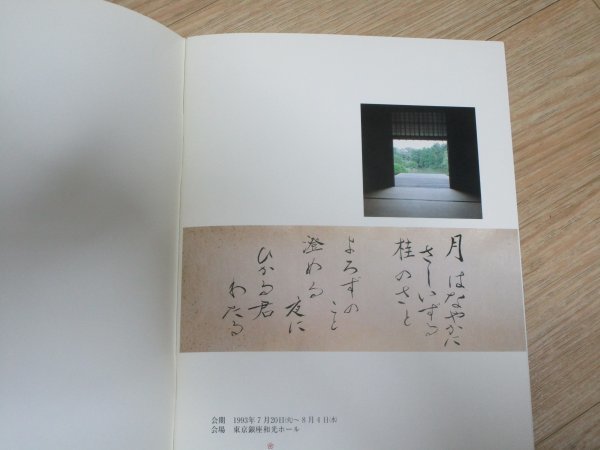 月はなやかに
さしいずる
桂のさと
よろずの
こと
澄める
夜に
ひかる君
わたる
会期 1993年7月20日(火)〜8月4日(水)
会場 東京銀座和光ホール